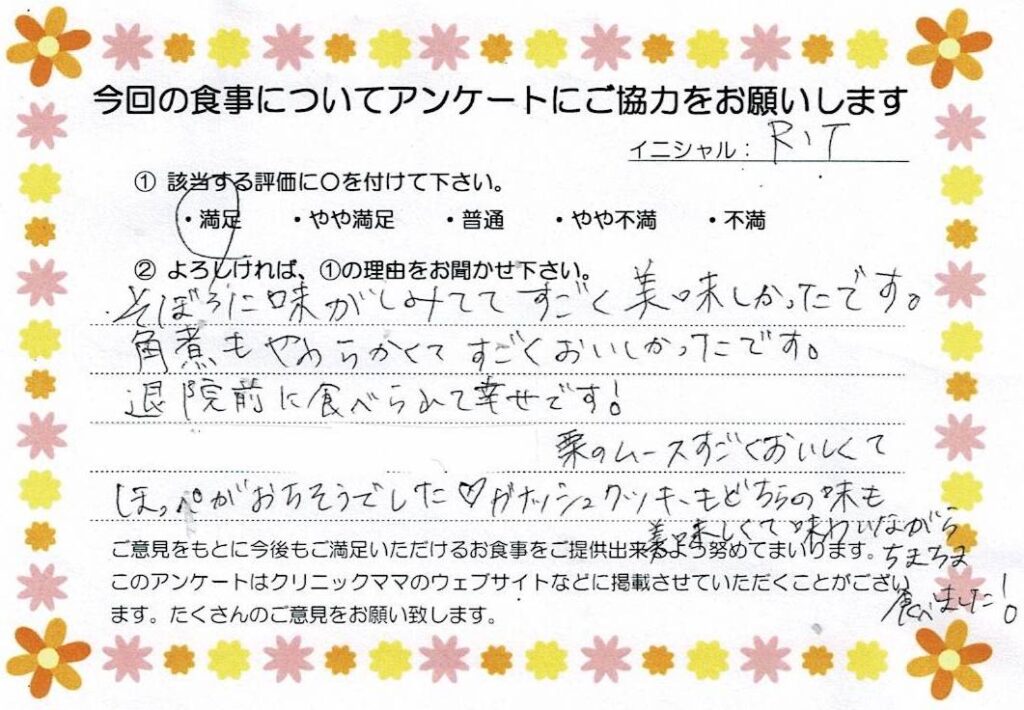 今回の食事についてアンケートにご協力をお願いします
イニシャル： R、T
① 該当する評価に〇を付けて下さい。
・満足 ・やや満足 ・普通 ・やや不満 ・不満
② よろしければ、①の理由をお聞かせ下さい。
そぼろに味がしみてて すごく美味しかったです。
角煮もやわらかくて すごくおいしかったです。
退院前に食べられて幸せです!
栗のムースすごくおいしくて
ほっぺがおちそうでした♡ガナッシュクッキーもどちらの味も
美味しくて味わいながら
ちまちま
食べました!
ご意見をもとに今後もご満足いただけるお食事をご提供出来るよう努めてまいります。
このアンケートはクリニックママのウェブサイトなどに掲載させていただくことがござい
ます。たくさんのご意見をお願い致します。